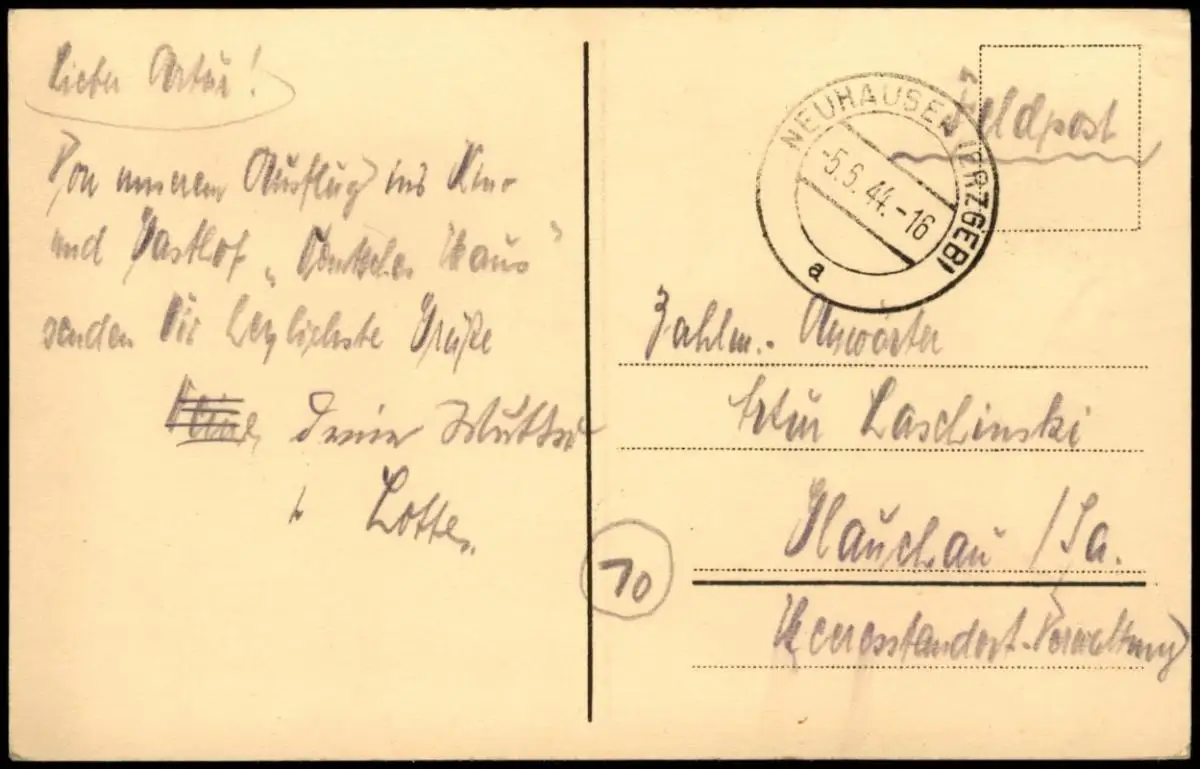 Lieber Artur!
Von unserem Ausflug ins Kino
und Gasthof „Deutsches Haus"
senden Dir herzlichste Grüße
Deine Mutter
u. Lotte.
Feldpost
NEUHAUSEN (ERZGEB)
-5.6.44.-16
a
Zahlm.-Anwärter
Artur Laschinski
10
Glauchau /Sa.
Heeresstandort-Verwaltung